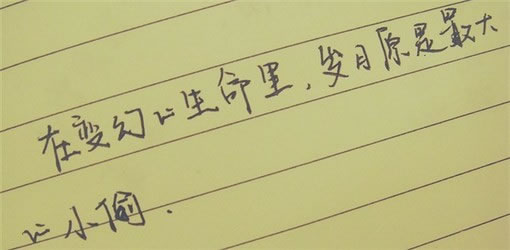 在变幻的生命里，岁月原是最大
的小偷．